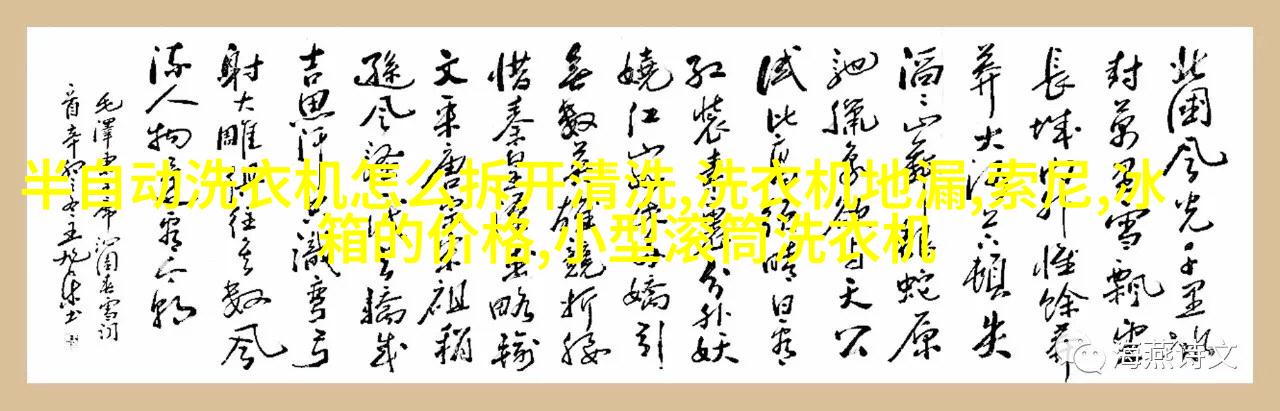 半自动洗衣机怎么拆开清洗,洗衣机地漏,索尼,冰
箱的价格,小型滚筒洗衣机
北國风光千里冰
封萬里雪飄望
長城内外惟餘莽
莽大河上下頓失
滔滔山舞银蛇原
馳臘象欲与天公
試比高须晴日看
红裝素裹分外妖
嬈江山如此多嬌引
無數英雄競折腰
惜秦皇漢武略輸
文采唐宗宋祖稍
遜风骚一代天驕成
吉思汗只識彎弓
射大雕俱往矣數风
流人物還看今朝
毛澤東主席沁園春雪词
海燕诗文